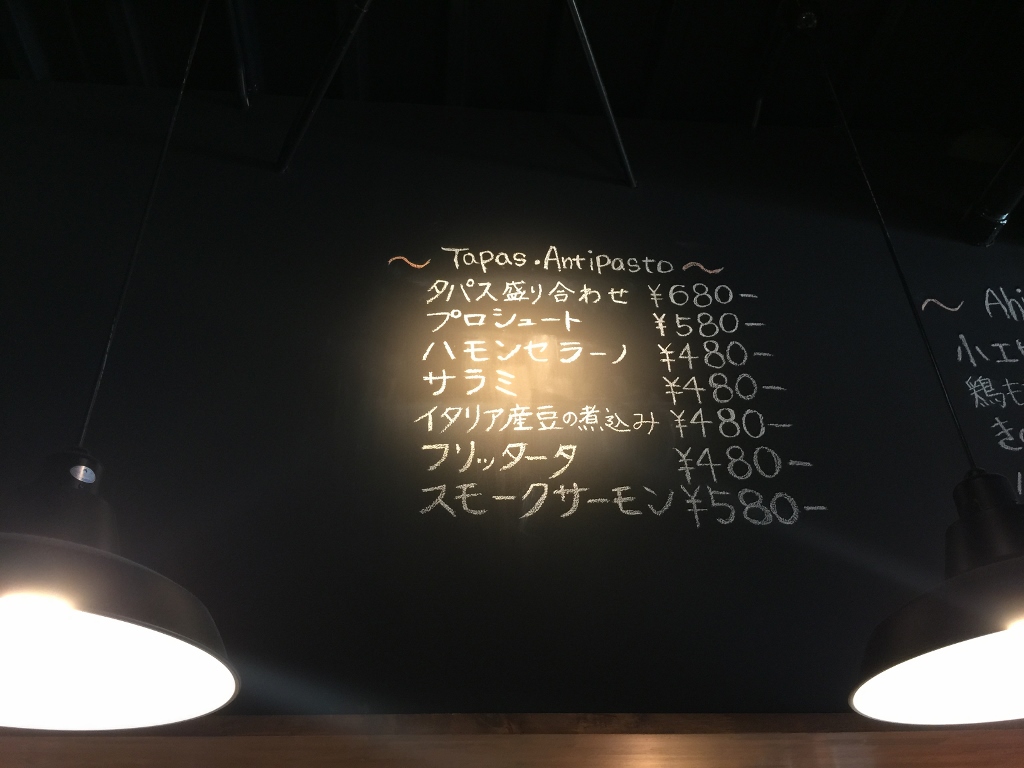 ~ Tapas・Antipasto ~
タパス盛り合わせ ¥680-
プロシュート ¥580-
ハモンセラーノ ¥480-
サラミ ¥480-
イタリア産豆の煮込み ¥480-
フリッタータ ¥480-
スモークサーモン ¥580-
~ Ahi
小エビ
鶏も
きの